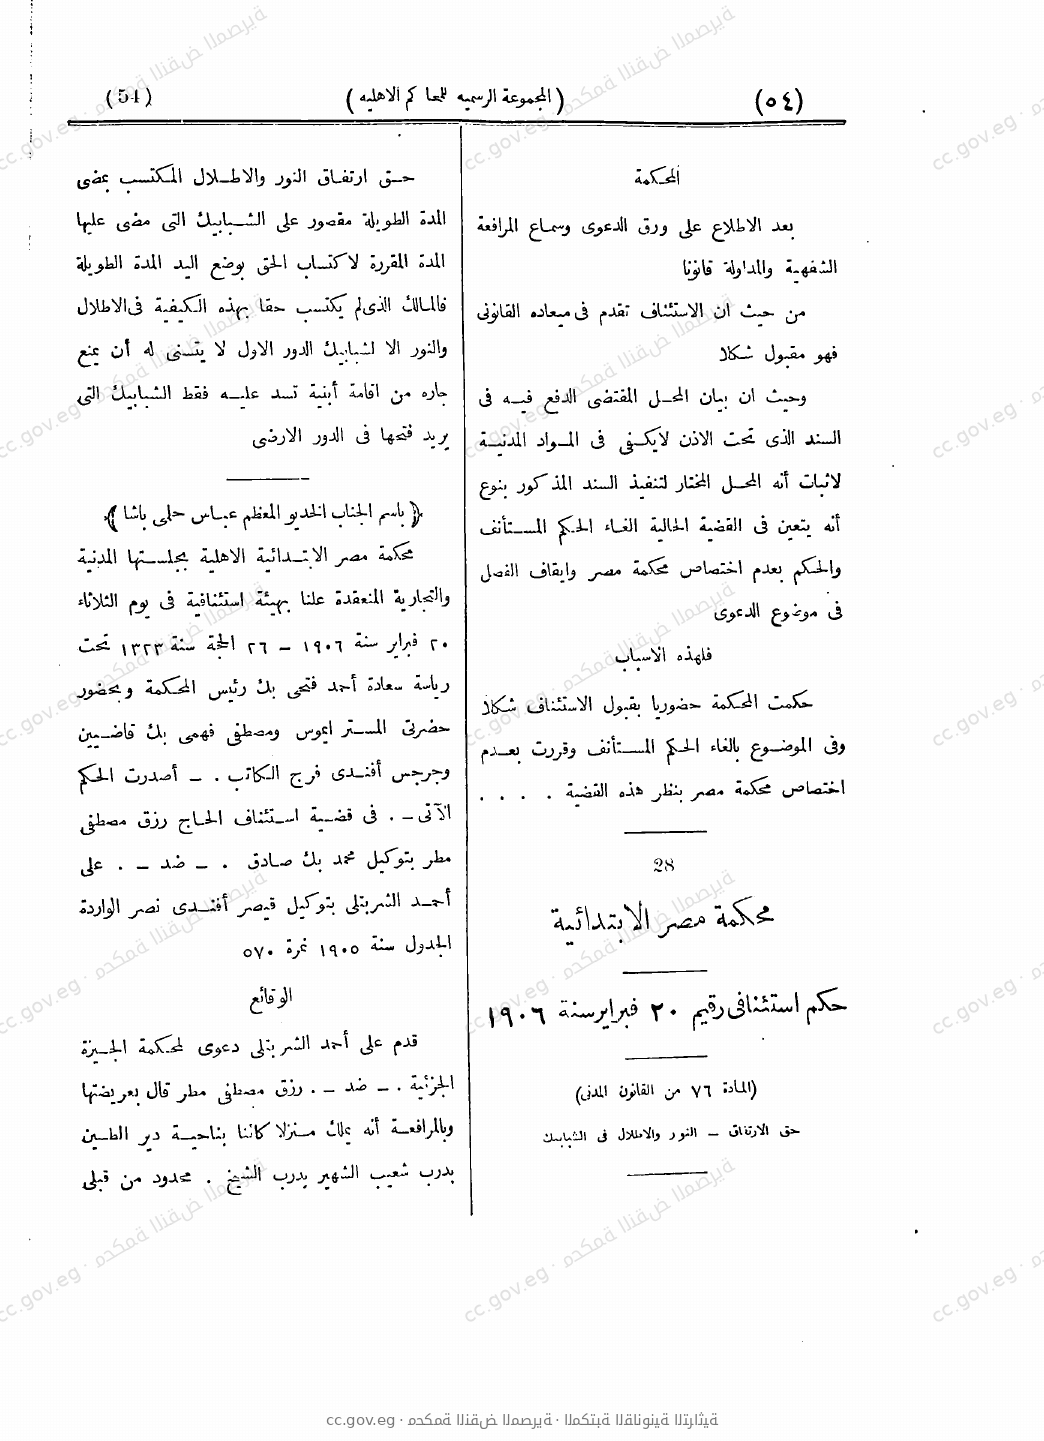 (٥٤)
(المجموعة الرسميه للمحاكم الاهليه)
(54)
المحكمة
بعد الاطلاع على ورق الدعوى وسماع المرافعة
الشفهية والمداولة قانونا
من حيث ان الاستئناف تقدم فى ميعاده القانونى
فهو مقبول شكلا
وحيث ان بيان المحل المقتضى الدفع فيه فى
السند الذى تحت الاذن لايكفى فى المواد المدنية
لاثبات أنه المحل المختار لتنفيذ السند المذكور بنوع
أنه يتعين فى القضية الحالية الغاء الحكم المستأنف
والحكم بعدم اختصاص محكمة مصر وايقاف الفصل
فى موضوع الدعوى
فلهذه الاسباب
حكمت المحكمة حضوريا بقبول الاستئناف شكلا
وفى الموضوع بالغاء الحكم المستأنف وقررت بعدم
اختصاص محكمة مصر بنظر هذه القضية . . . .
28
محكمة مصر الابتدائية
حكم استئنافى رقيم ٢٠ فبراير سنة ١٩٠٦
(المادة ٧٦ من القانون المدنى)
حق الارتفاق – النور والاطلال فى الشبابيك
حق ارتفاق النور والاطلال المكتسب بمضى
المدة الطويلة مقصور على الشبابيك التى مضى عليها
المدة المقررة لاكتساب الحق بوضع اليد المدة الطويلة
فالمالك الذى لم يكتسب حقا بهذه الكيفية فى الاطلال
والنور الا لشبابيك الدور الاول لا يتسنى له أن يمنع
جاره من اقامة أبنية تسد عليه فقط الشبابيك التى
يريد فتحها فى الدور الارضى
﴿باسم الجناب الخديو المعظم عباس حلمى باشا﴾
محكمة مصر الابتدائية الاهلية بجلستها المدنية
والتجارية المنعقدة علنا بهيئة استئنافية فى يوم الثلاثاء
٢٠ فبراير سنة ١٩٠٦ – ٢٦ الحجة سنة ١٣٢٣ تحت
رياسة سعادة أحمد فتحى بك رئيس المحكمة وبحضور
حضرتى المستر ايموس ومصطفى فهمى بك قاضيين
وجرجس أفندى فرج الكاتب . – أصدرت الحكم
الآتى – . فى قضية استئناف الحاج رزق مصطفى
مطر بتوكيل محمد بك صادق . – ضد – . على
أحمد الشربتلى بتوكيل قيصر أفندى نصر الواردة
الجدول سنة ١٩٠٥ نمرة ٥٧٠
الوقائع
قدم على أحمد الشربتلى دعوى لمحكمة الجيزة
الجزئية . – ضد – . رزق مصطفى مطر قال بعريضتها
وبالمرافعة أنه يملك منزلا كائنا بناحية دير الطين
بدرب شعيب الشهير بدرب الشيخ . محدود من قبلى
cc.gov.eg · محكمة النقض المصرية · المكتبة القانونية التراثية